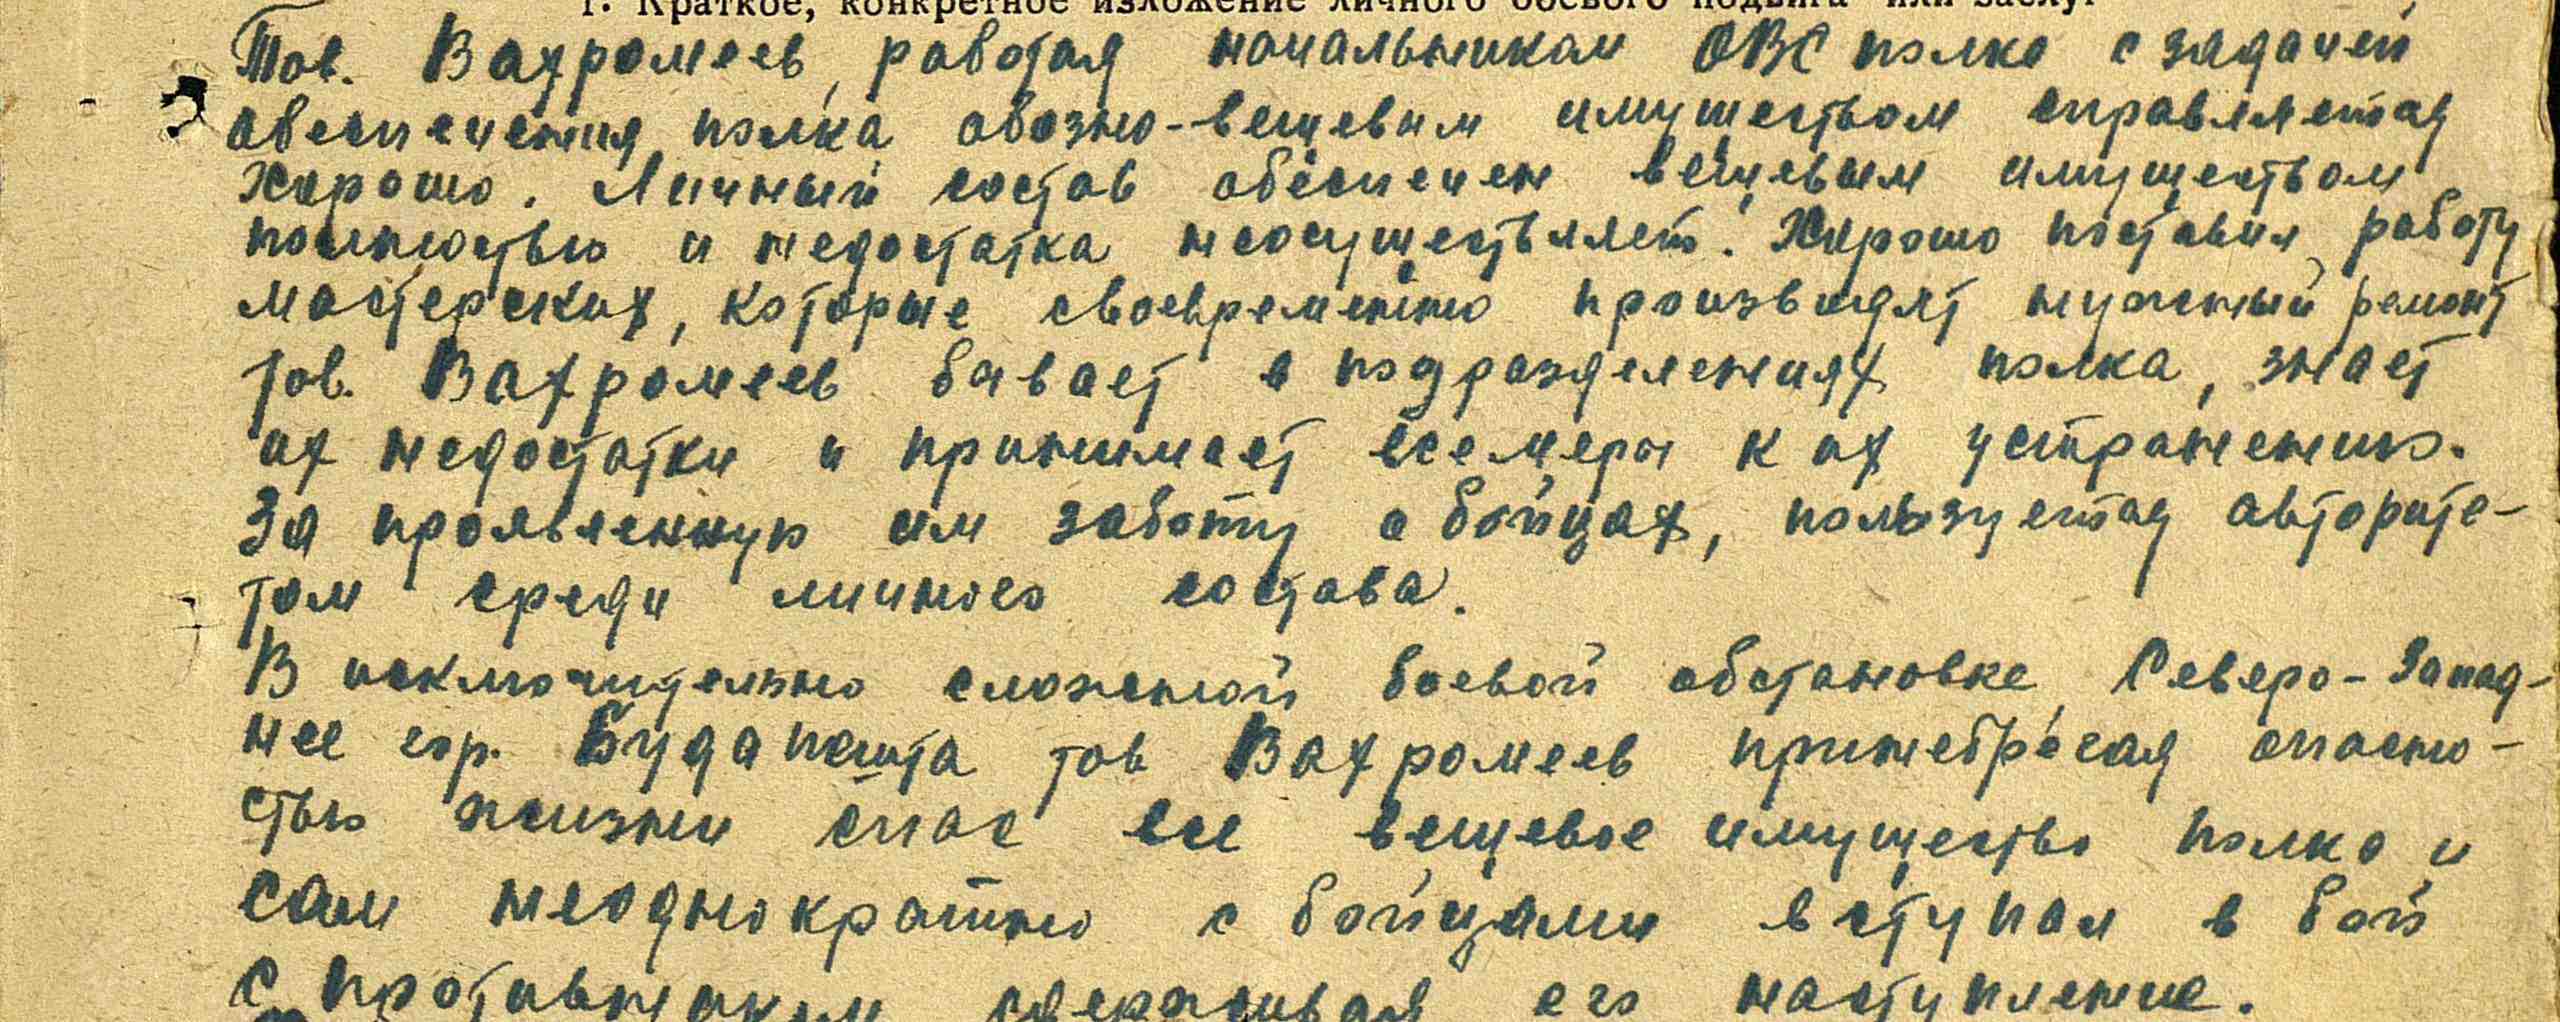 1. Краткое, конкретное изложение личного боевого подвига или заслуг
Тов. Вахромеев, работая начальником ОВС полка с задачей
обеспечения полка обозно-вещевым имуществом справляется
хорошо. Личный состав обеспечен вещевым имуществом
полностью и недостатка неосуществляет. Хорошо поставил работу
мастерских, которые своевременно производят нужный ремонт
тов. Вахромеев бывает в подразделениях полка, знает
их недостатки и принимает все меры к их устранению.
За проявленную им заботу о бойцах, пользуется авторите-
том среди личного состава.
В исключительно сложной боевой обстановке Северо-Запад-
нее гор. Будапешта тов Вахромеев принебрегая опасно-
стью жизни спас все вещевое имущество полка и
сам неоднократно с бойцами вступал в бой
с противником сдерживая его наступление.